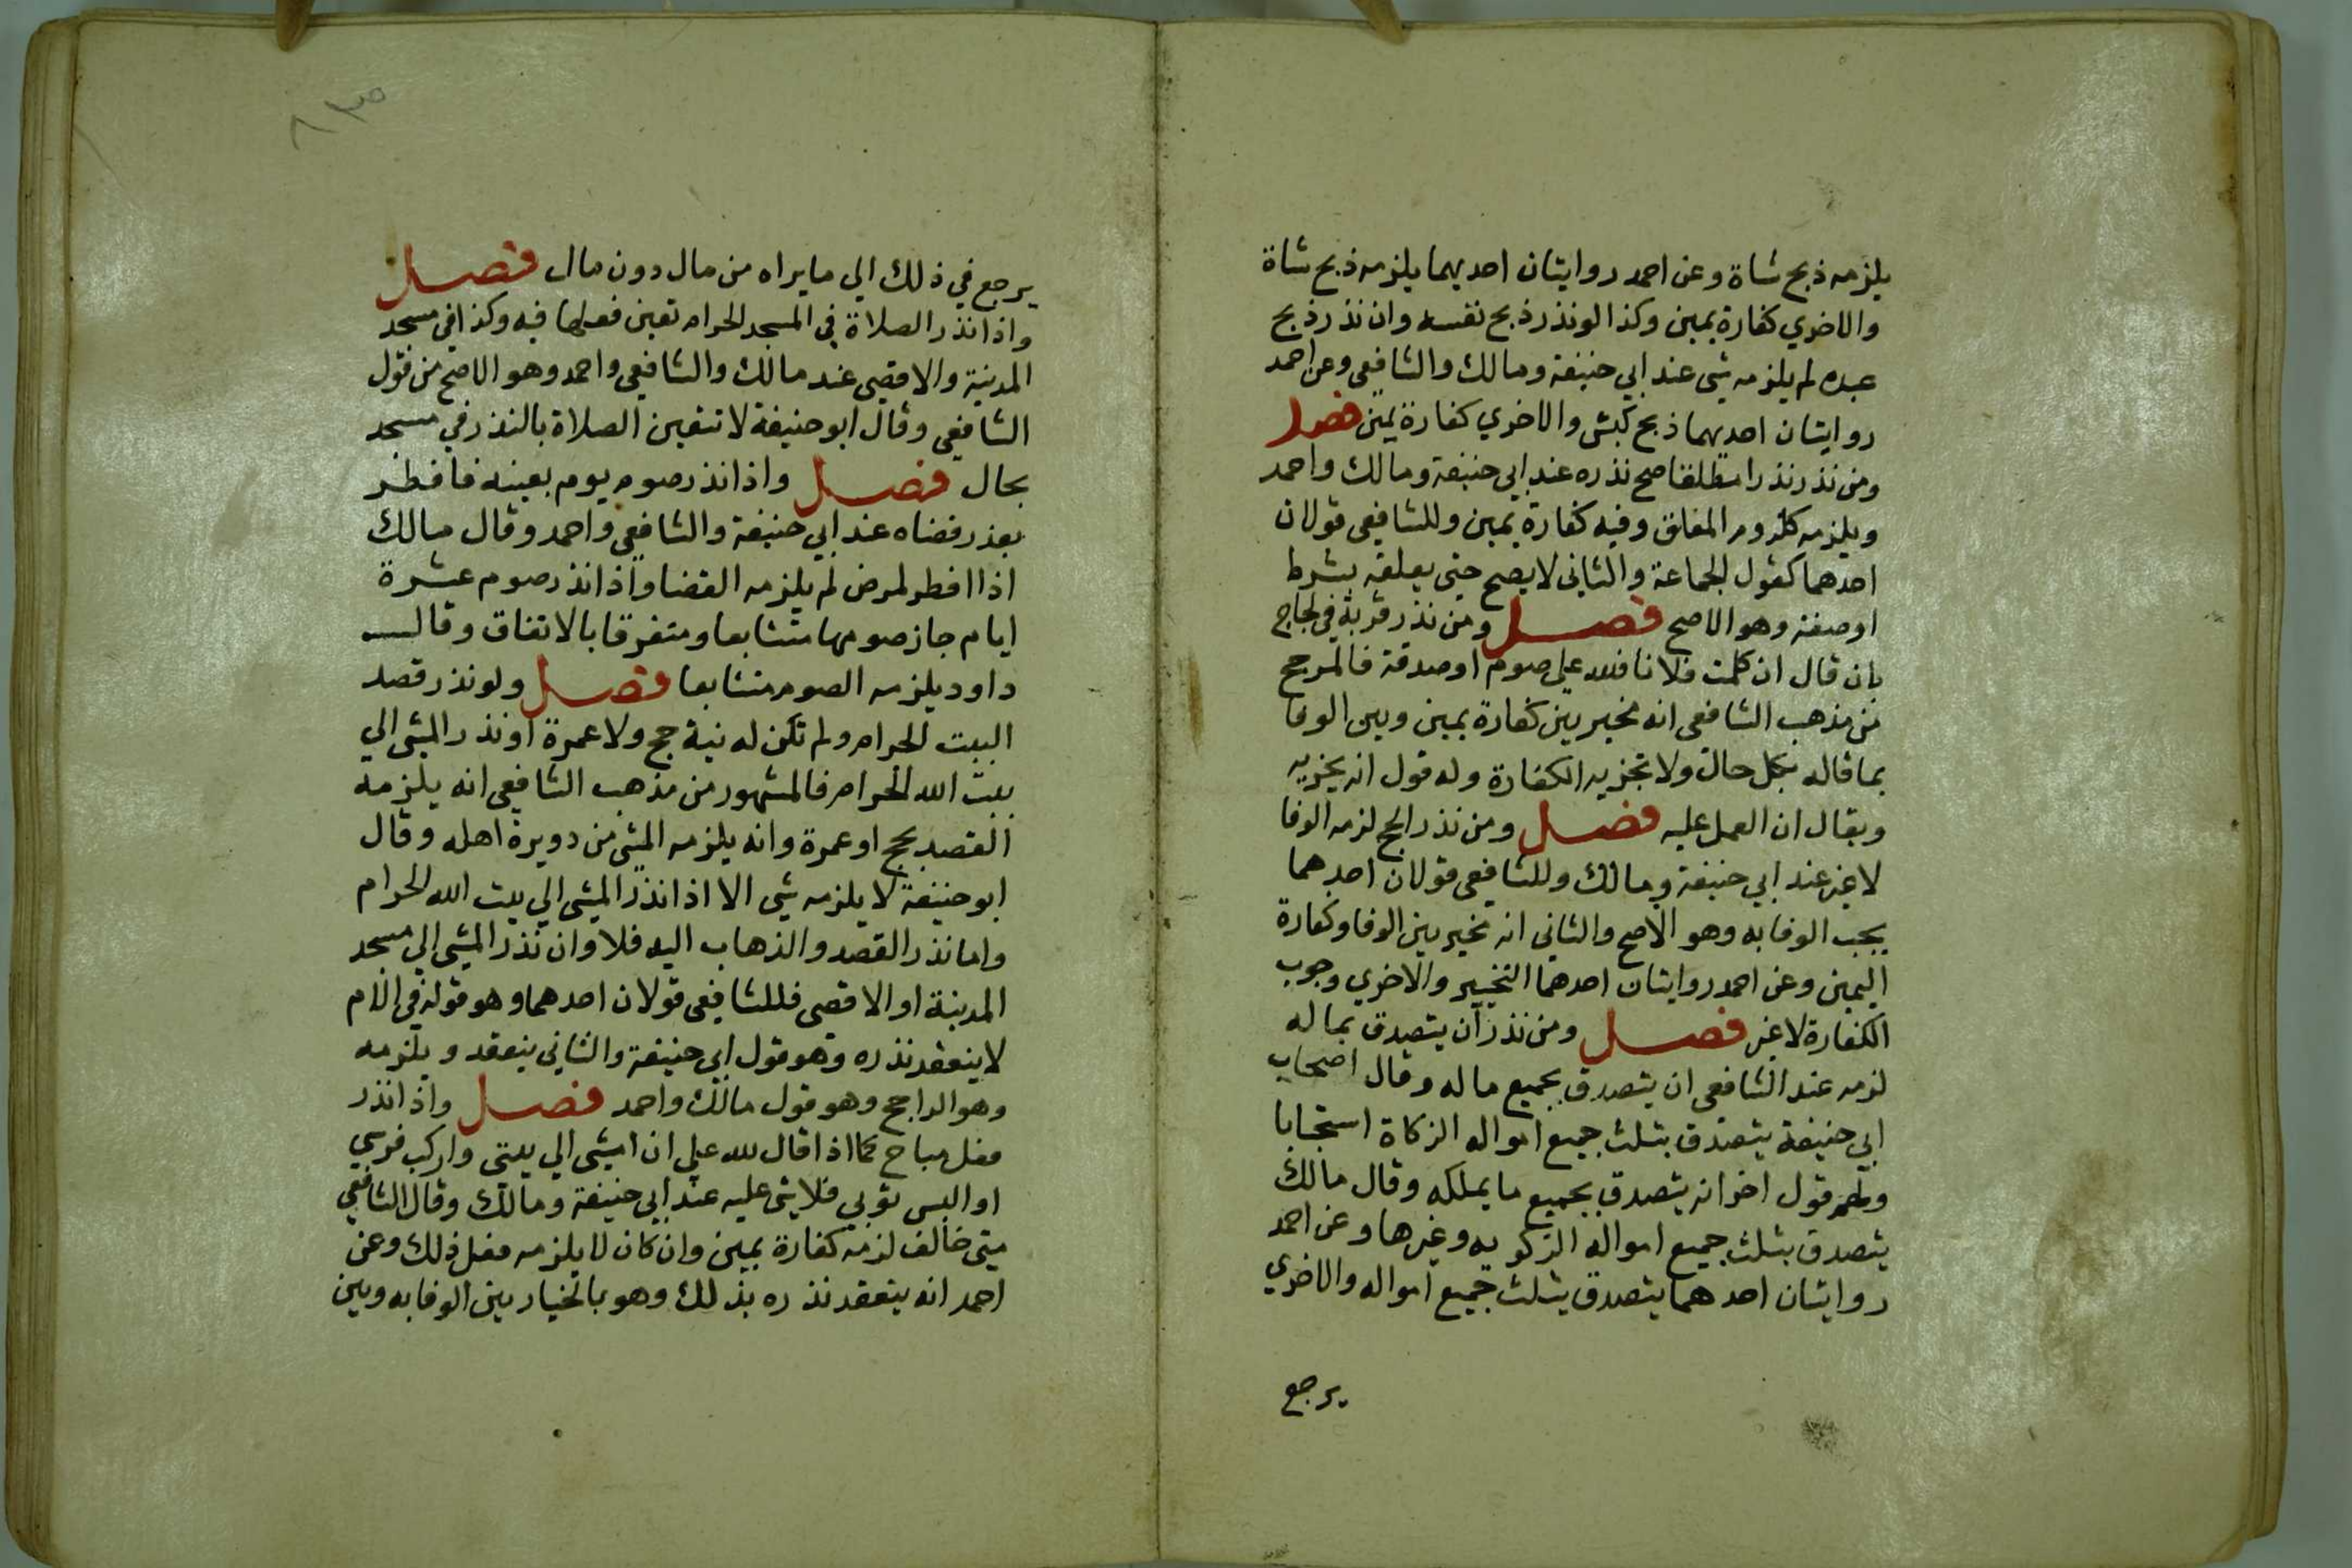 يلزمه ذبح شاة وعن احمد روايتان احديهما يلزمه ذبح شاة
والاخري كفارة يمين وكذا لو نذر ذبح نفسه وان نذر ذبح
عبده لم يلزمه شي عند ابي حنيفة ومالك والشافعي وعن احمد
روايتان احديهما ذبح كبش والاخري كفارة يمين فصل
ومن نذر نذرا مطلقا صح نذره عند ابي حنيفة ومالك واحمد
ويلزمه كلزوم المعلق وفيه كفارة يمين وللشافعي قولان
احدهما كقول الجماعة والثاني لا يصح حتي يعلقه بشرط
اوصفة وهو الاصح فصل ومن نذر قربة في لجاج
بان قال ان كلمت فلانا فلله علي صوم او صدقة فالمرجح
من مذهب الشافعي انه مخير بين كفارة يمين وبين الوفا
بما قاله بكل حال ولا تجزيه الكفارة وله قول انه يجزيه
ويقال ان العمل عليه فصل ومن نذر الحج لزمه الوفا
لا غير عند ابي حنيفة ومالك وللشافعي قولان احدهما
يجب الوفا به وهو الاصح والثاني انه مخير بين الوفا وكفارة
اليمين وعن احمد روايتان احدهما التخيير والاخري وجوب
الكفارة لا غير فصل ومن نذر ان يتصدق بماله
لزمه عند الشافعي ان يتصدق بجميع ماله وقال اصحاب
ابي حنيفة يتصدق بثلث جميع امواله الزكاة استحبابا
ولهم قول اخر انه يتصدق بجميع ما يملكه وقال مالك
يتصدق بثلث جميع امواله الزكويه وغيرها وعن احمد
روايتان احدهما يتصدق بثلث جميع امواله والاخري
يرجع
يرجع في ذلك الي ما يراه من مال دون مال فصل
واذا نذر الصلاة في المسجد الحرام تعين فعلها فيه وكذا في مسجد
المدينة والاقصي عند مالك والشافعي واحمد وهو الاصح من قول
الشافعي وقال ابو حنيفة لا تتعين الصلاة بالنذر في مسجد
بحال فصل واذا نذر صوم يوم بعينه فافطر
بعذر قضاه عند ابي حنيفة والشافعي واحمد وقال مالك
اذا افطر لمرض لم يلزمه القضا واذا نذر صوم عشرة
ايام جاز صومها متتابعا ومتفرقا بالاتفاق وقال
داود يلزمه الصوم متتابعا فصل ولو نذر قصد
البيت الحرام ولم تكن له نية حج ولا عمرة او نذر المشي الي
بيت الله الحرام فالمشهور من مذهب الشافعي انه يلزمه
القصد بحج او عمرة وانه يلزمه المشي من دويرة اهله وقال
ابو حنيفة لا يلزمه شي الا اذا نذر المشي الي بيت الله الحرام
واما نذر القصد والذهاب اليه فلا وان نذر المشي الي مسجد
المدينة او الاقصي فللشافعي قولان احدهما وهو قوله في الام
لا ينعقد نذره وهو قول ابي حنيفة والثاني ينعقد ويلزمه
وهو الراجح وهو قول مالك واحمد فصل واذا نذر
فعل مباح كما اذا قال لله علي ان امشي الي بيتي واركب فرسي
او البس ثوبي فلا شي عليه عند ابي حنيفة ومالك وقال الشافعي
متي خالف لزمه كفارة يمين وان كان لا يلزمه فعل ذلك وعن
احمد انه ينعقد نذره بذلك وهو بالخيار بين الوفا به وبين